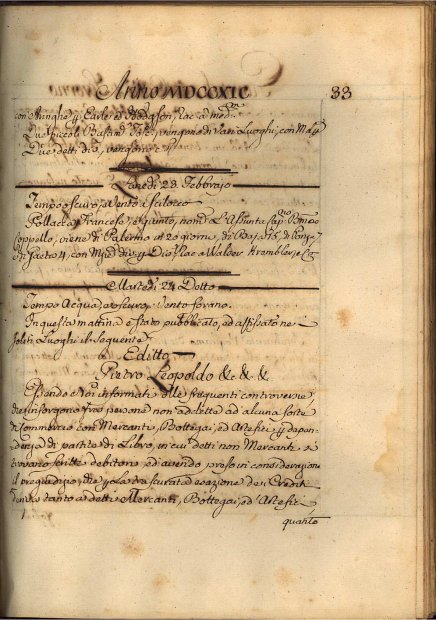 Anno MDCCXIC
33
con Aringhe p Earle et Hodgson, rac. a med.
Due piccoli Bastim. Tosc. vengono di vari Luoghi, con M.
Due detti di o, vengono e
Lunedì 23. Febbrajo
Tempo oscuro, e Vento e Scilocco
Pollacca Francese, è giunto, nom. L'Assunta Cap.no
Coppello, viene di Palermo in 20 giorni, di
di fuoco 4, con M di p Dio rac a Walser Krambler e C.
Martedì 24 Detto
Tempo Acqua, e oscuro, Vento forano.
In questa mattina è stato pubblicato, ed affissato ne
soliti Luoghi il seguente
Editto
Pietro Leopoldo &. &. &.
Essendo Noi informati delle frequenti controversie,
che insorgono fra persone non addette ad alcuna sorte
di Commercio, con Mercanti, Bottegai, ed Artefici p dipen-
denza di partite di Libro, in cui detti non Mercanti, si
trovano scritti debitori, ed avendo preso in considerazione
il pregiudizio, che p la trascurata eazione de i Crediti
tanto a detti Mercanti, Bottegai, ed Artefici
quanto